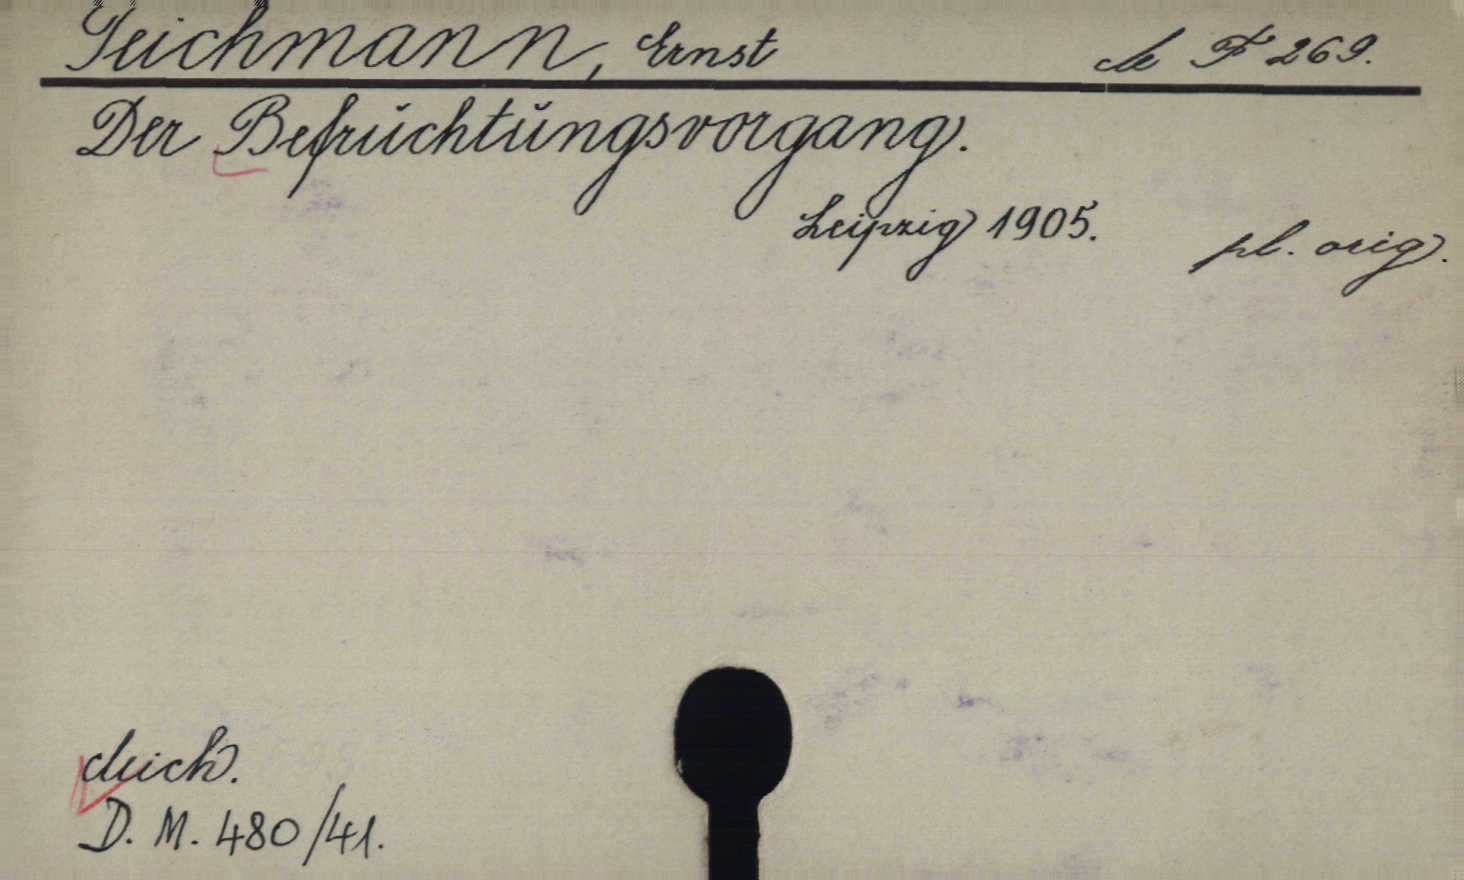 Teichmann, Ernst de F 269.
Der Befruchtungsvorgang.
Leipzig 1905. pl. orig.
D. M. 480/41.